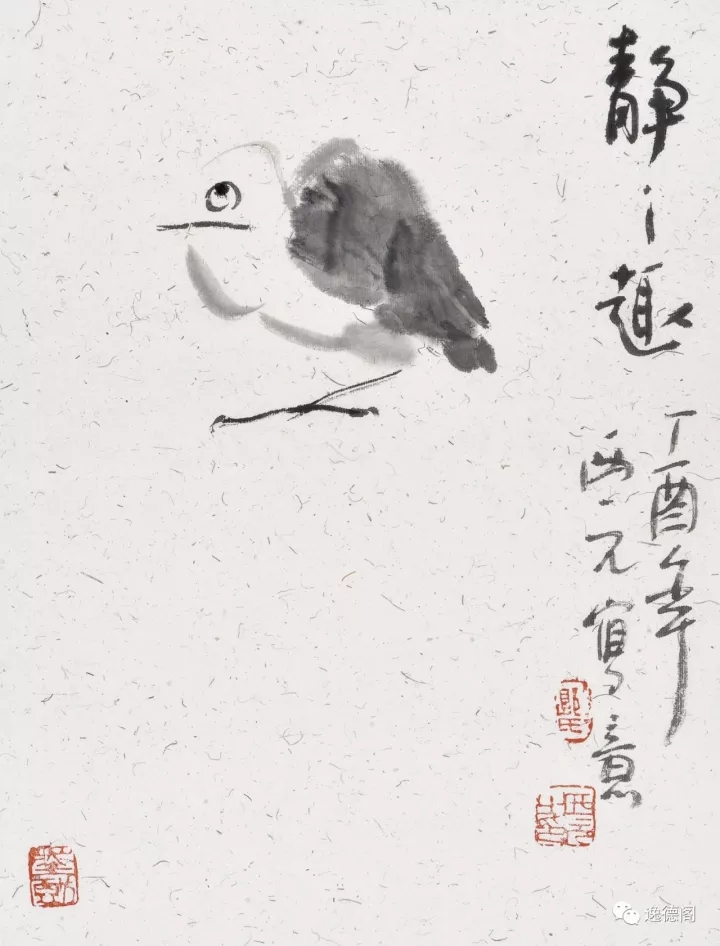 静之趣
丁酉年
西元写意
逸德阁